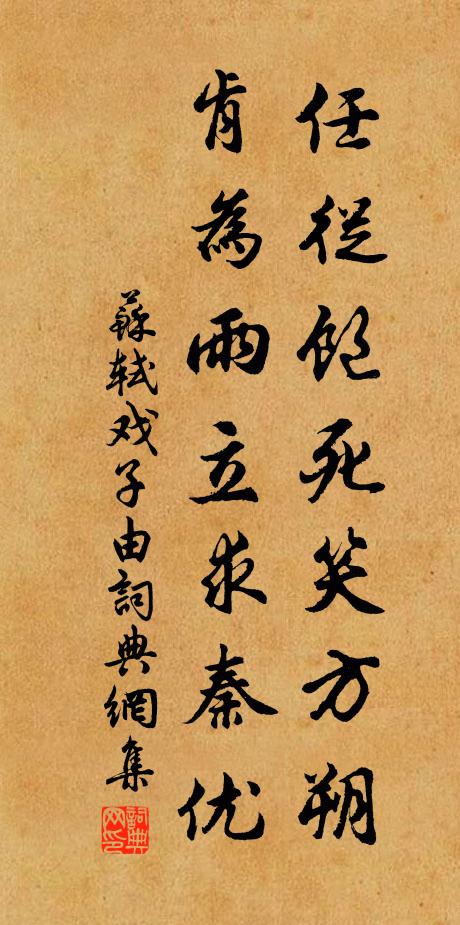 任從飽死笑方朔
肯為雨立求秦优
蘇軾戏子由詞典網集
詞典网印